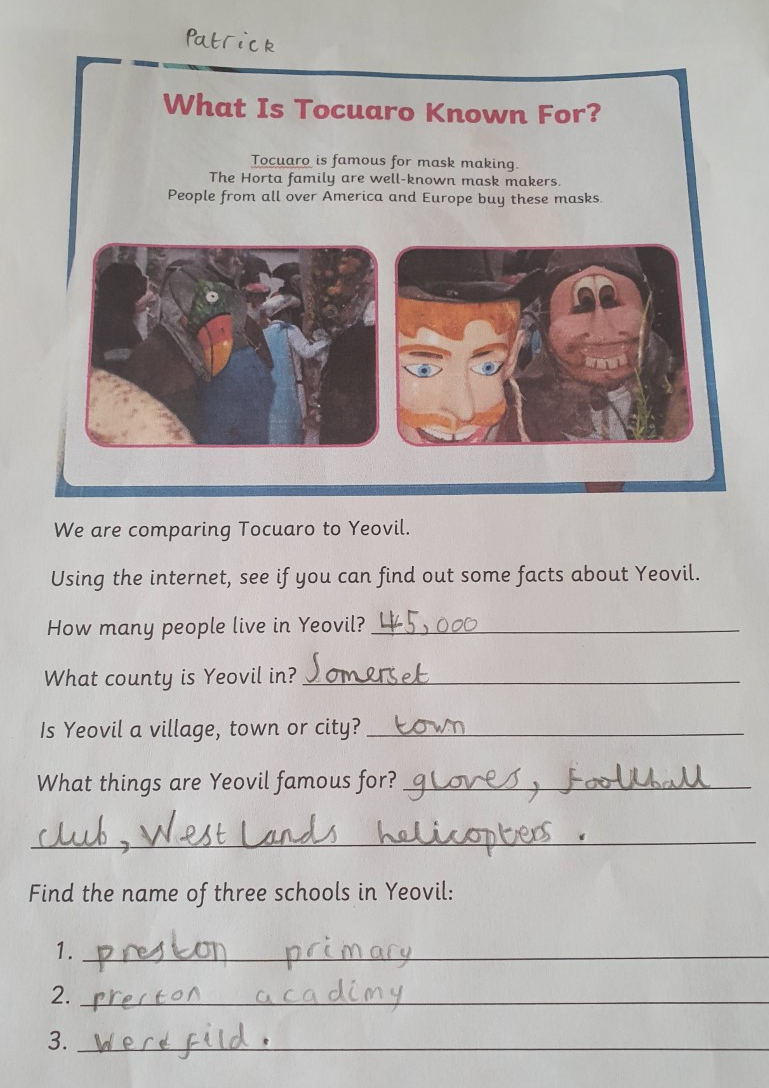 Patrick
What Is Tocuaro Known For?
Tocuaro is famous for mask making.
The Horta family are well-known mask makers.
People from all over America and Europe buy these masks.
We are comparing Tocuaro to Yeovil.
Using the internet, see if you can find out some facts about Yeovil.
How many people live in Yeovil? 45,000
What county is Yeovil in? Somerset
Is Yeovil a village, town or city? town
What things are Yeovil famous for? gloves, Football
club, West Lands helicopters.
Find the name of three schools in Yeovil:
1. preston primary
2. preston acadimy
3. werdfild.